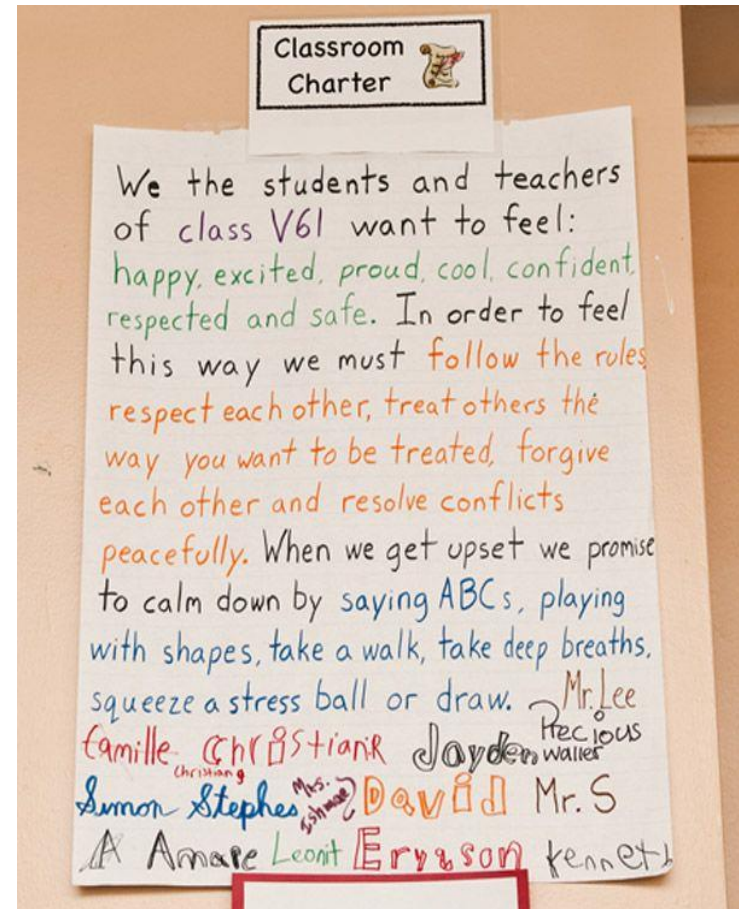 Classroom
Charter
We the students and teachers
of class V61 want to feel:
happy, excited, proud, cool, confident,
respected and safe. In order to feel
this way we must follow the rules
respect each other, treat others the
way you want to be treated, forgive
each other and resolve conflicts
peacefully. When we get upset we promise
to calm down by saying ABCs, playing
with shapes, take a walk, take deep breaths,
squeeze a stress ball or draw. Mr. Lee
Camille ChristianR Jayden Precious
Waller
Christian g
Simon Stephes Mrs. Ishmael David Mr. S
A Amare Leonit Eryason kenneth